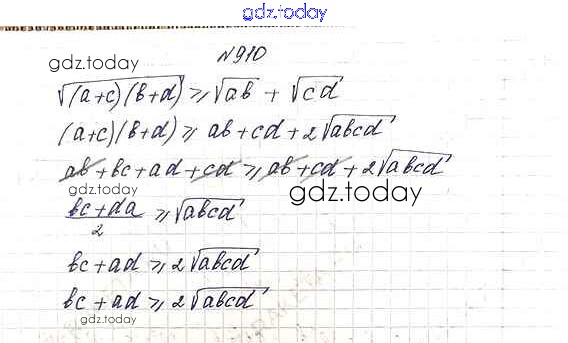 gdz.today
№910
gdz.today
√(a+c)(b+d) ⩾ √ab + √cd
(a+c)(b+d) ⩾ ab + cd + 2√abcd
ab + bc + ad + cd ⩾ ab + cd + 2√abcd
gdz.today
gdz.today
bc + da / 2 ⩾ √abcd
gdz.today
bc + ad ⩾ 2√abcd
bc + ad ⩾ 2√abcd
gdz.today